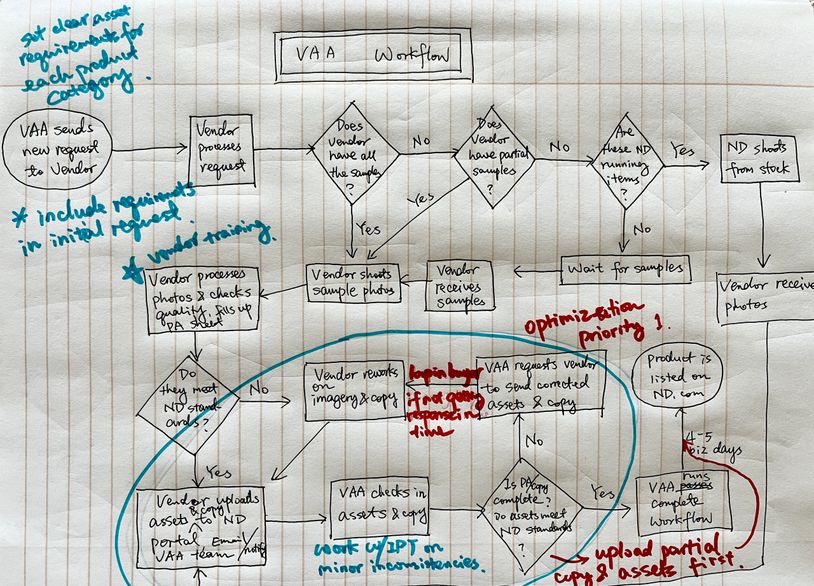 set clear asset
requirements for
each product
category.
VAA Workflow
VAA sends
new request
to Vendor
Vendor
processes
request
Does
vendor
have all
the samples
?
No
Does
Vendor
have partial
samples
?
No
Are
these ND
running
items
?
Yes
ND shoots
from stock
* include requirements
in initial request.
* vendor training.
Yes
Yes
No
Vendor processes
photos & checks
quality, fills up
PA sheet
Vendor shoots
sample photos
Vendor
receives
samples
Wait for samples
Vendor receive
photos
Optimization
priority 1.
Do
they meet
ND stand-
ards?
No
Vendor reworks
on
imagery & copy
loop in buyer
if not getting
response in
time
VAA requests vendor
to send corrected
assets & copy
product is
listed on
ND.com
Yes
No
4-5
biz days
Vendor uploads
& copy
assets to ND
portal Email/notify
VAA team
VAA checks in
assets & copy
Is PA copy
complete?
Do assets meet
ND standards
?
Yes
VAA runs passes
complete
workflow
work w/IPT on
minor inconsistencies.
upload partial
copy & assets first.